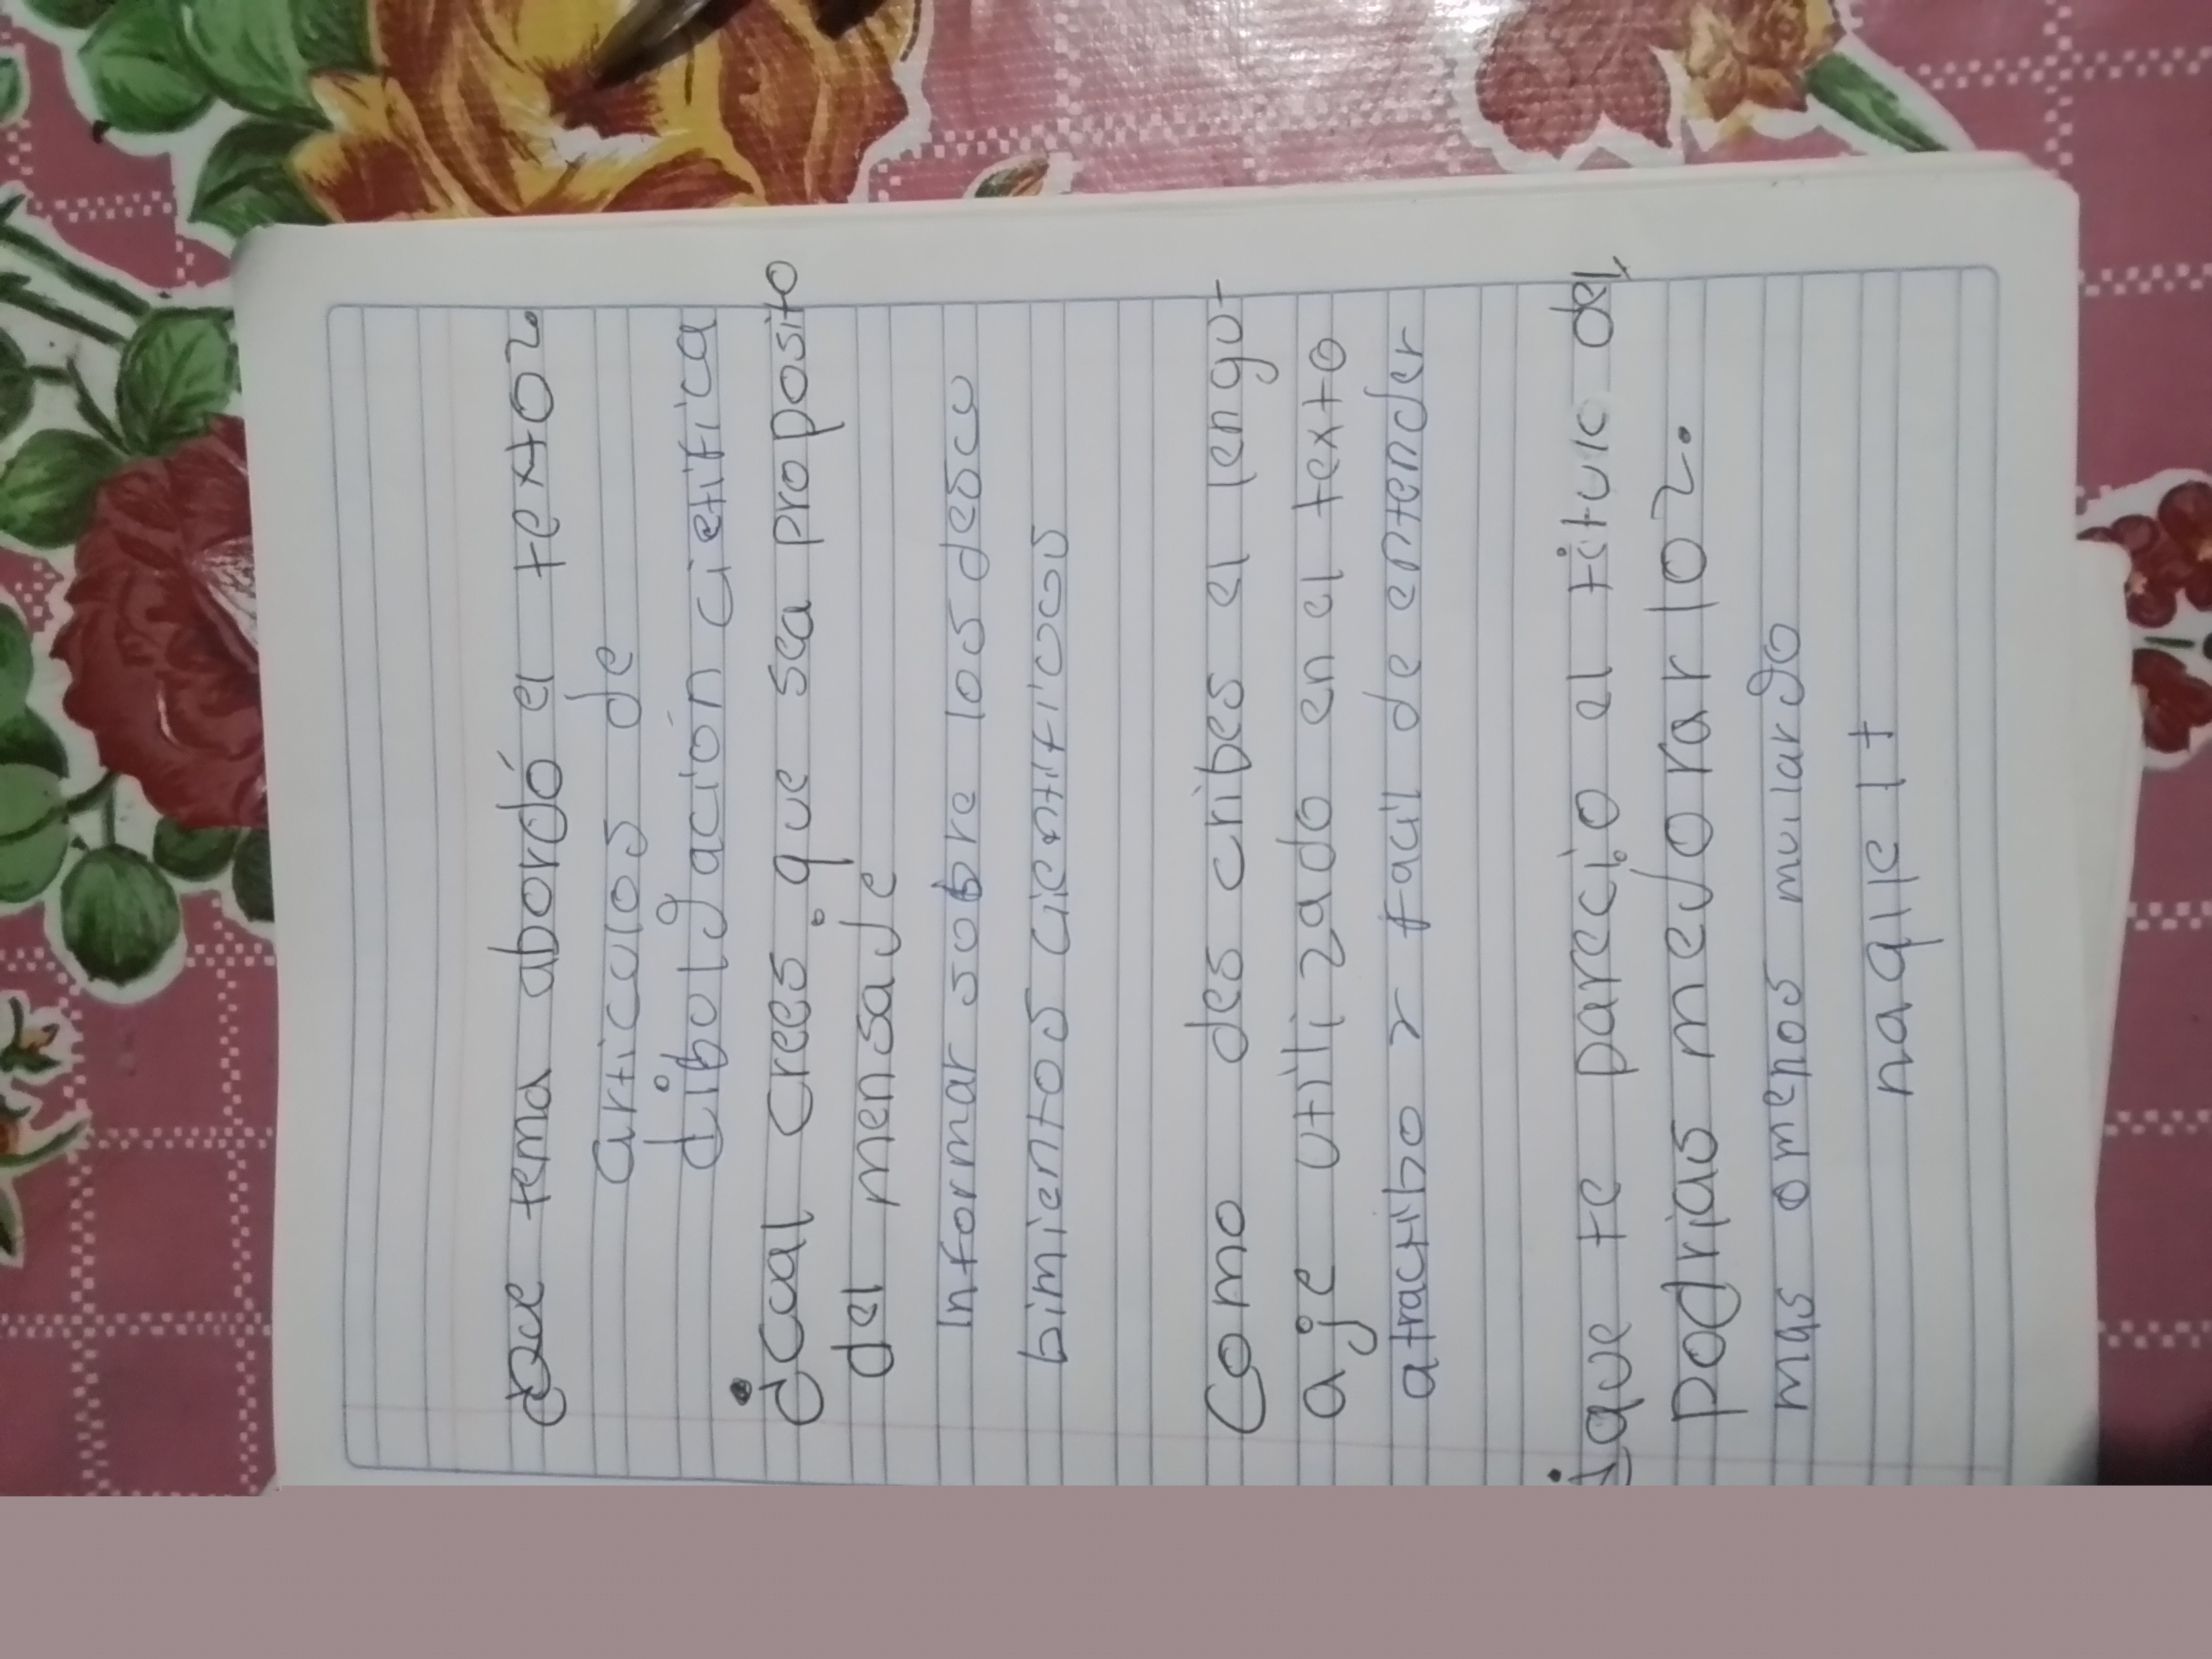 ¿Que tema abordó el texto?
articulos de
dibolgación cietifica
¿Cual crees que sea proposito
del mensaje
Informar sobre los descu
bimientos cientificos
Como des cribes el lengu-
aje utilizado en el texto
atractibo y facil de entender
¿que te parecio el titulo del
podrias mejorar lo?
mas omenos muilargo
naqile lt